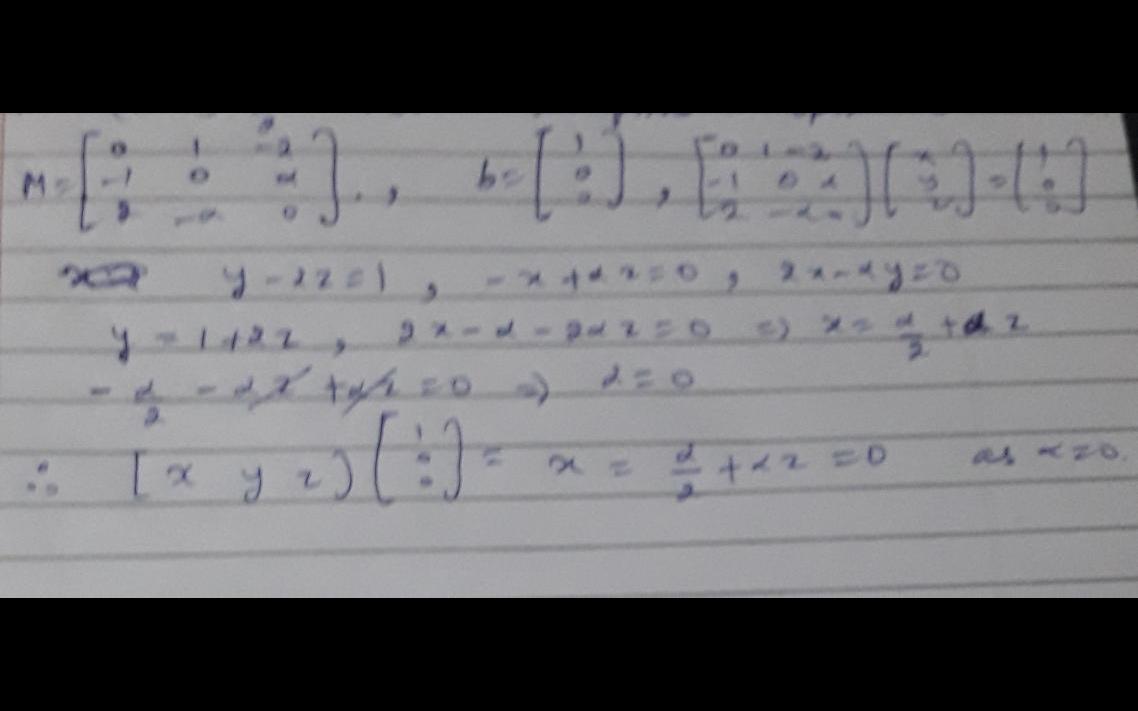 M = [0 1 -2; -1 0 α; 2 -α 0], b = [1; 0; 0], [0 1 -2; -1 0 α; 2 -α 0] [x; y; z] = [1; 0; 0]
y - 2z = 1, -x + αz = 0, 2x - αy = 0
y = 1 + 2z, 2x - α - 2αz = 0 => x = α/2 + αz
- α/2 - αz + αz = 0 => α = 0
∴ [x y z) [1; 0; 0] = x = α/2 + αz = 0 as α = 0.